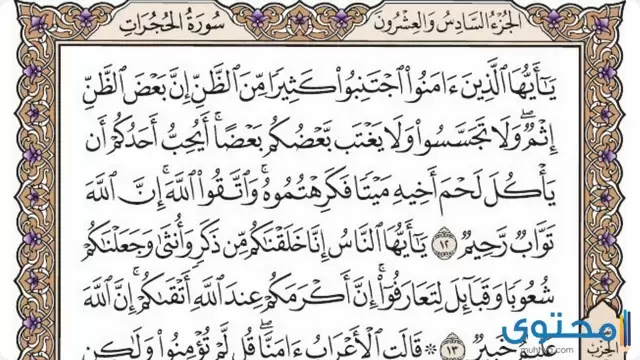 الجزء السادس والعشرون سورة الحجرات
يَٰٓأَيُّهَا ٱلَّذِينَ ءَامَنُوا۟ ٱجْتَنِبُوا۟ كَثِيرًا مِّنَ ٱلظَّنِّ إِنَّ بَعْضَ ٱلظَّنِّ
إِثْمٌ ۖ وَلَا تَجَسَّسُوا۟ وَلَا يَغْتَب بَّعْضُكُم بَعْضًا ۚ أَيُحِبُّ أَحَدُكُمْ أَن
يَأْكُلَ لَحْمَ أَخِيهِ مَيْتًا فَكَرِهْتُمُوهُ ۚ وَٱتَّقُوا۟ ٱللَّهَ ۚ إِنَّ ٱللَّهَ
تَوَّابٌ رَّحِيمٌ ١٢ يَٰٓأَيُّهَا ٱلنَّاسُ إِنَّا خَلَقْنَٰكُم مِّن ذَكَرٍ وَأُنثَىٰ وَجَعَلْنَٰكُمْ
شُعُوبًا وَقَبَآئِلَ لِتَعَارَفُوٓا۟ ۚ إِنَّ أَكْرَمَكُمْ عِندَ ٱللَّهِ أَتْقَىٰكُمْ ۚ إِنَّ ٱللَّهَ
عَلِيمٌ خَبِيرٌ ١٣ ۞ قَالَتِ ٱلْأَعْرَابُ ءَامَنَّا ۖ قُل لَّمْ تُؤْمِنُوا۟ وَلَٰكِن
الحزب
محتوى